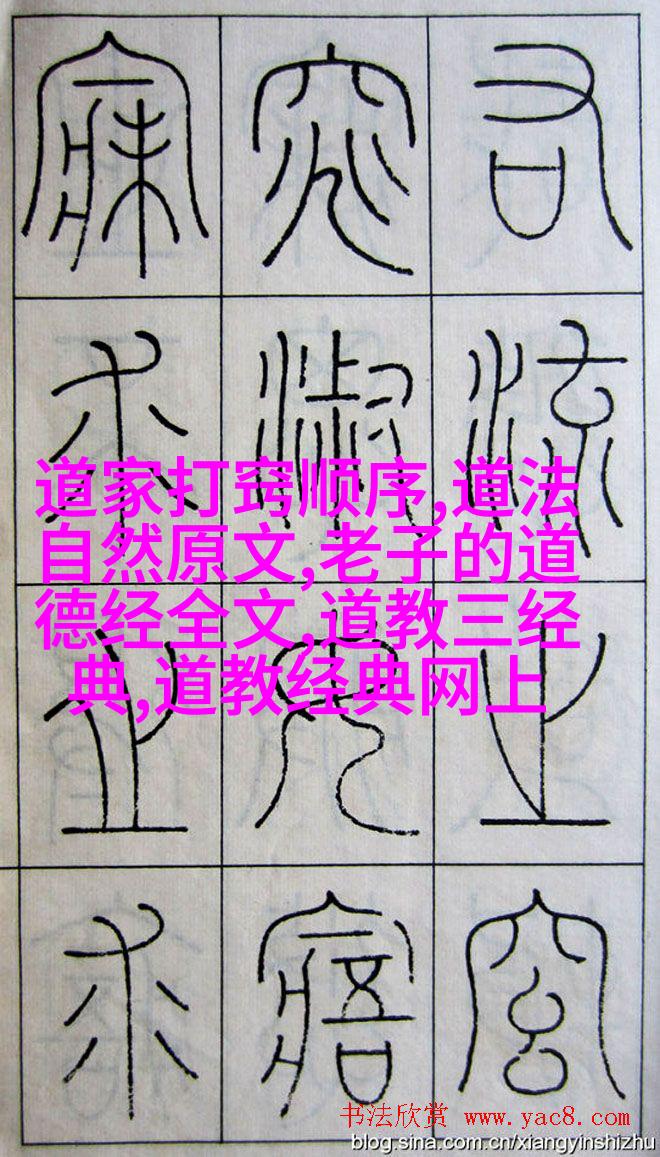 右流之窈
窕淑女寤
寐求之求
道家打窍顺序,道法
自然原文,老子的道
德经全文,道教三经
典,道教经典网上
书法欣赏 www.yac8.com
blog.sina.com.cn/xiangyinshizhu